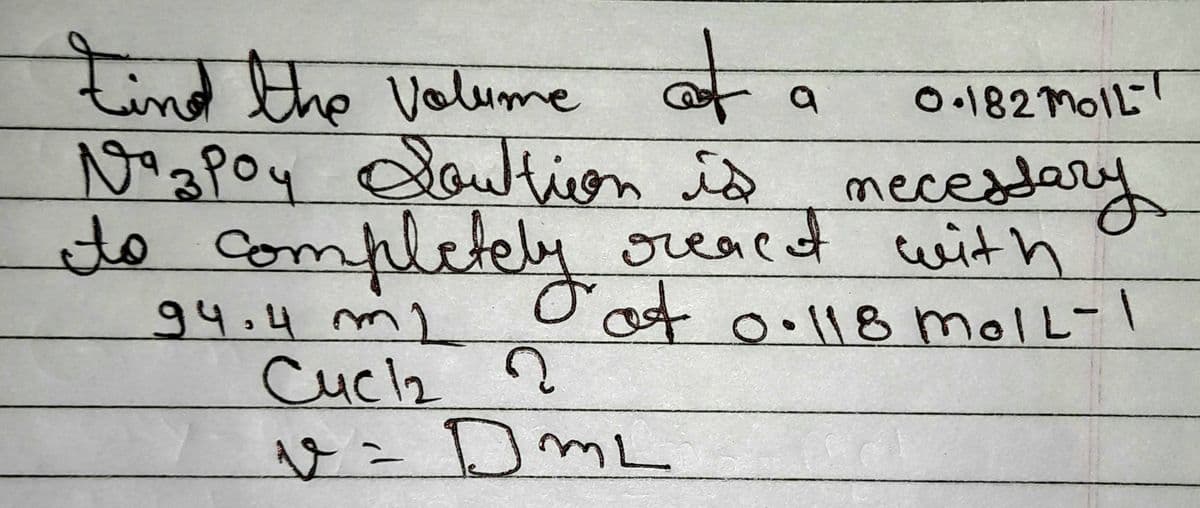 Find the Volume of a 0.182 molL-1
Na3PO4 Soultion is necessary
to completely react with
94.4 mL of 0.118 molL-1
Cucl2 ?
v = □ mL